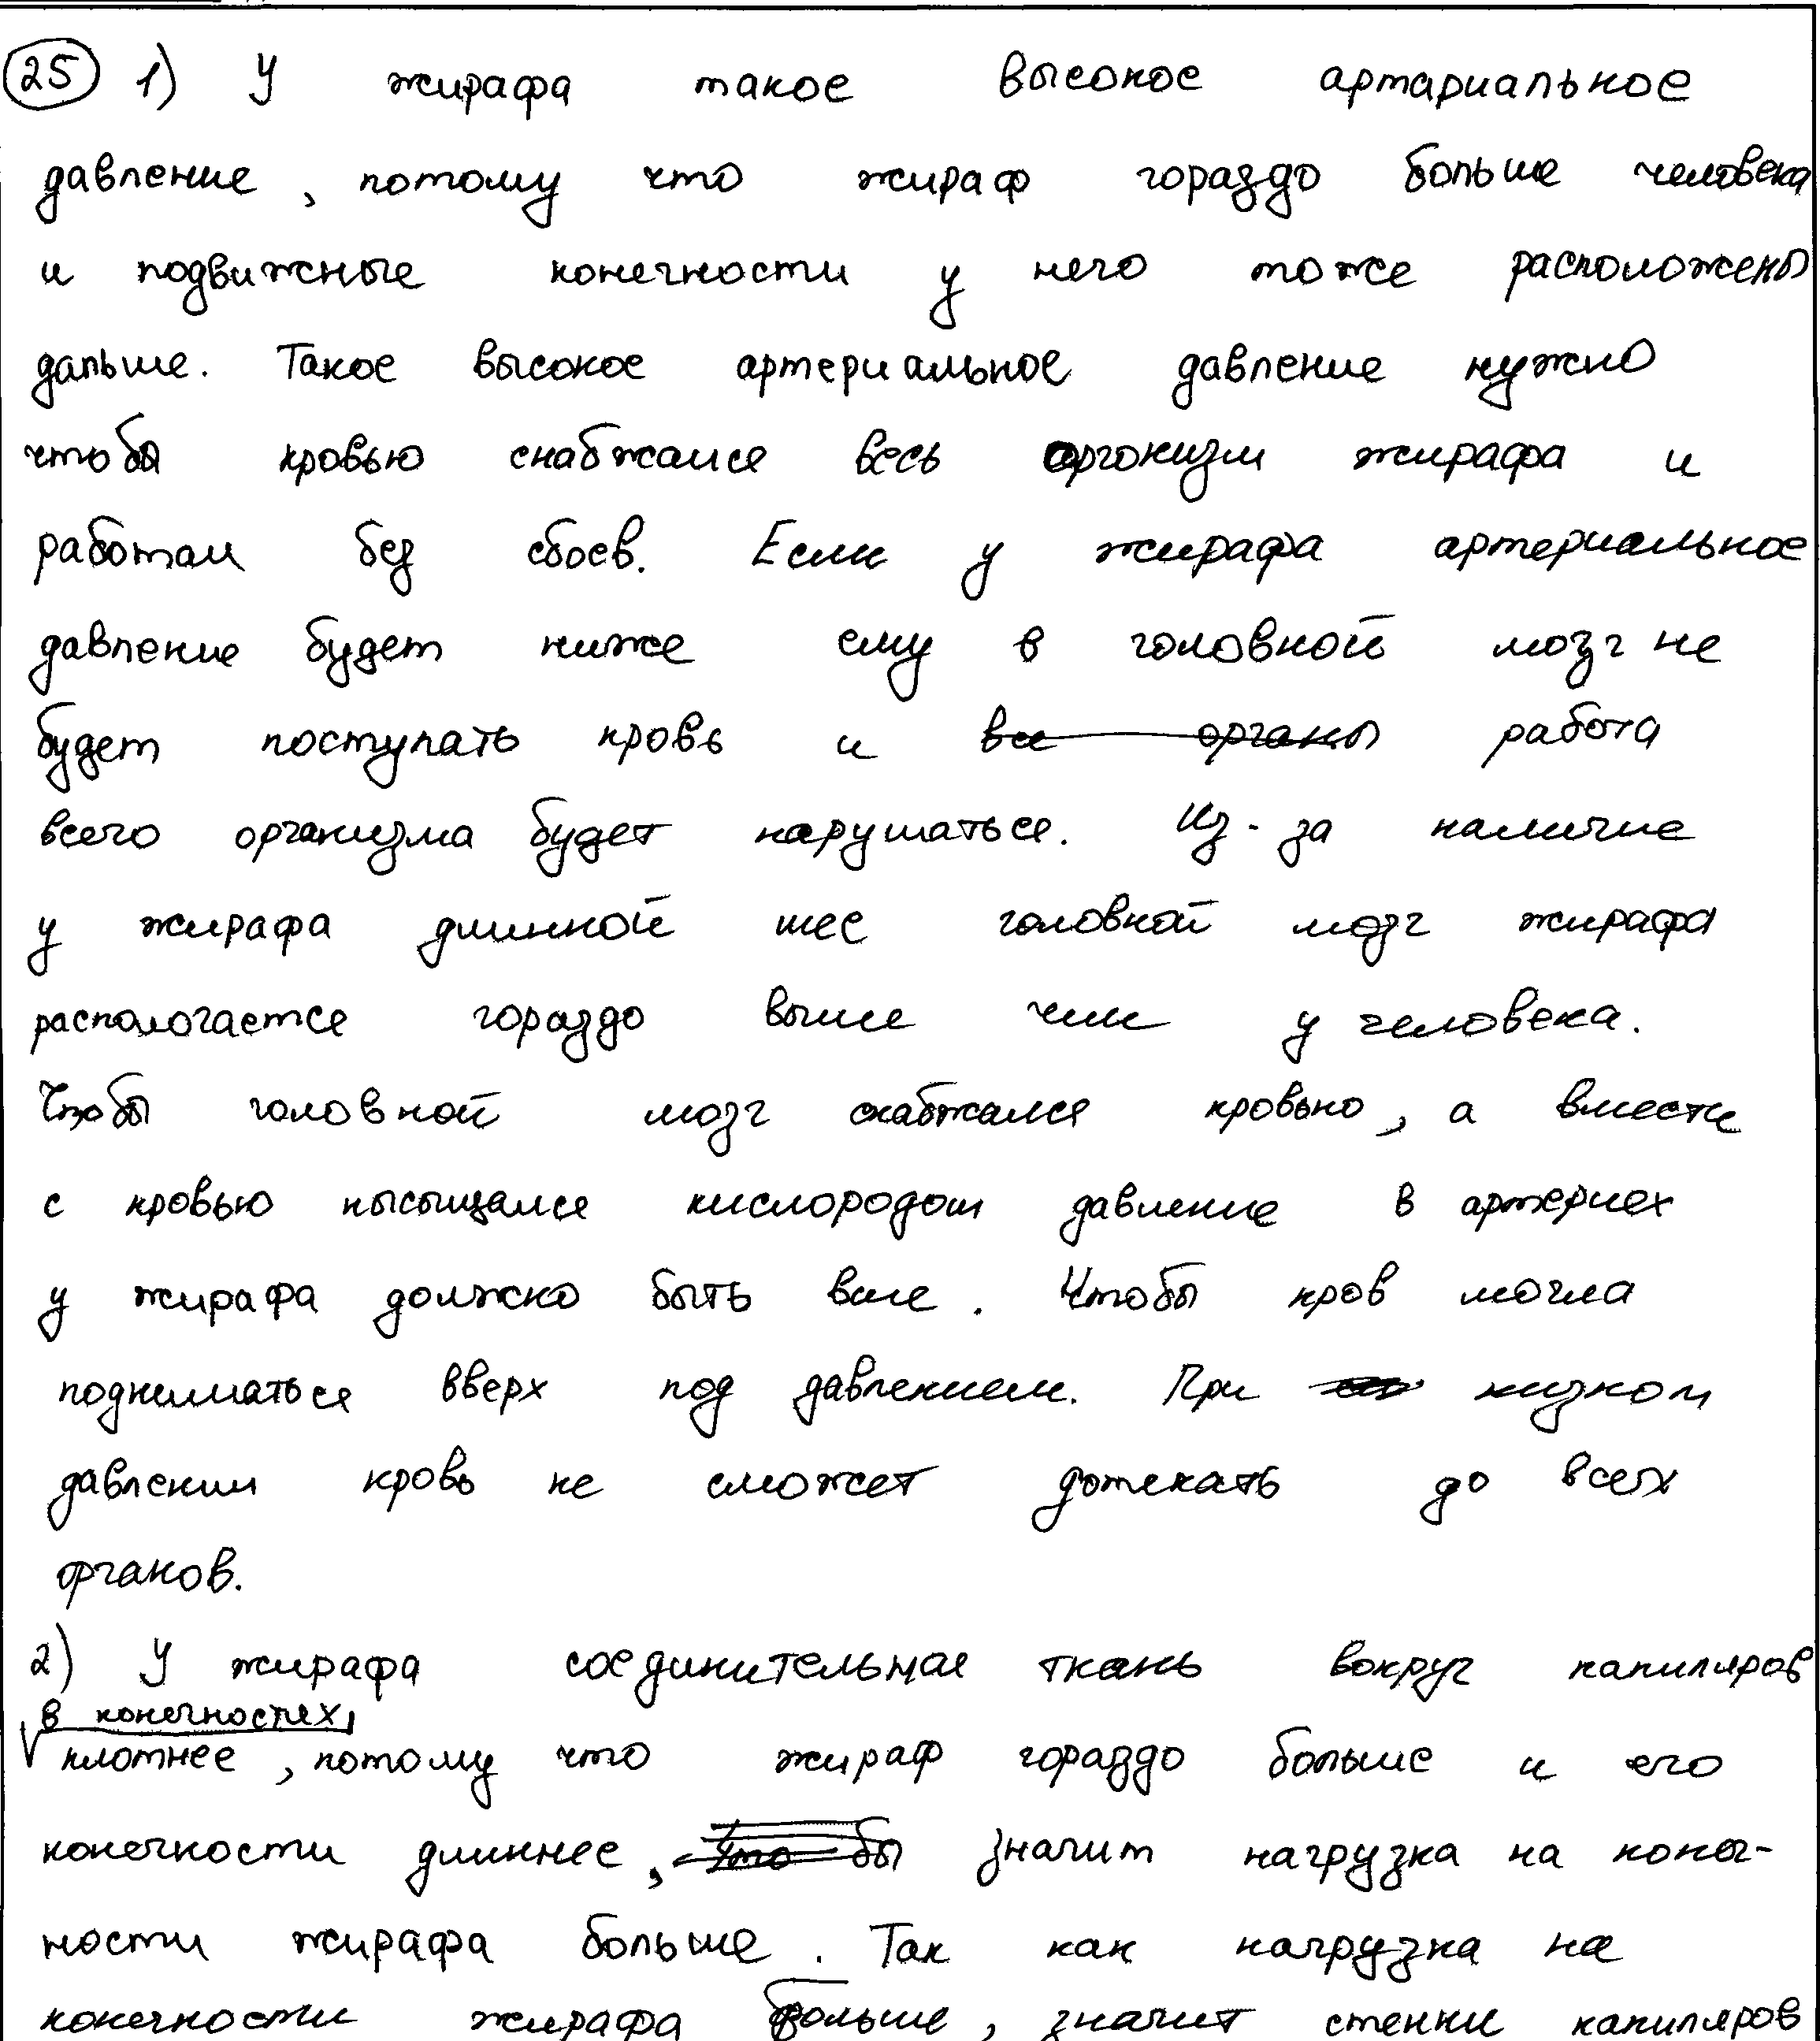 25 1) У жирафа такое высокое артариальное
давление, потому что жираф гораздо больше человека
и подвижные конечности у него тоже расположены
дальше. Такое высокое артериальное давление нужно
чтобы кровью снабжался весь оргонизм жирафа и
работал без сбоев. Если у жирафа артериальное
давление будет ниже ему в головной мозг не
будет поступать кровь и все органы работа
всего организма будет нарушаться. Из-за наличие
у жирафа длинной шее головной мозг жирафа
распологается гораздо выше чем у человека.
Чтобы головной мозг снабжался кровью, а вместе
с кровью нысыщался кислородом давление в артериях
у жирафа должно быть выше. Чтобы кров могла
подниматься вверх под давлением. При низком
давлении кровь не сможет дотекать до всех
органов.
2) У жирафа соединительная ткань вокруг капиляров
в конечностях,
плотнее, потому что жираф гораздо больше и его
конечности длиннее, чтобы значит нагрузка на конеч-
ности жирафа больше. Так как нагрузка на
конечности жирафа больше, значит стенки капиляров